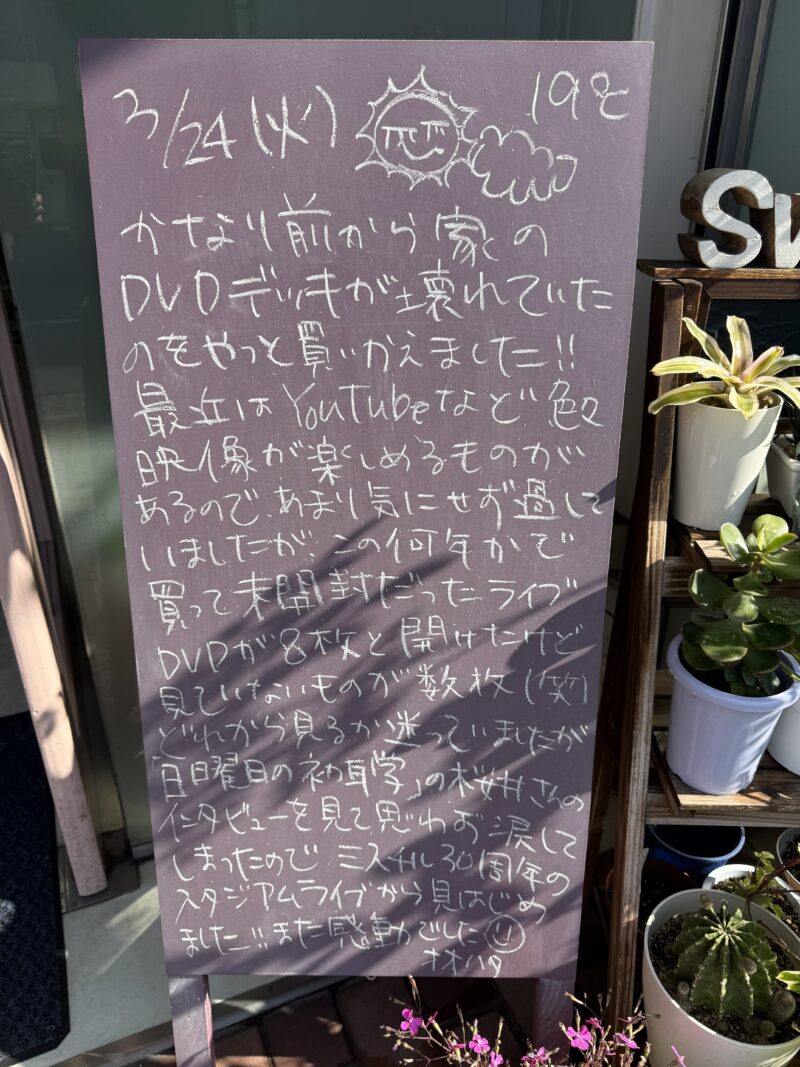 3/24(火) 19℃
かなり前から家の
DVDデッキが壊れていた
のをやっと買いかえました!!
最近はYouTubeなど色々
映像が楽しめるものが
あるので、あまり気にせず過して
いましたが、この何年かで
買って未開封だったライブ
DVDが8枚と開けたけど
見ていないものが数枚(笑)
どれから見るか迷っていましたが
「日曜日の初耳学」の桜井さんの
インタビューを見て思わず涙して
しまったので ミスチル30周年の
スタジアムライブから見はじめ
ました!!また感動でした